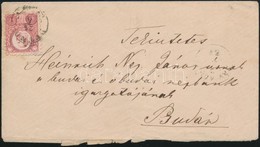 Tekintetes
Heinrich Nep. János úrnak
a budai s óbudai népbank
igazgatójának
Budán